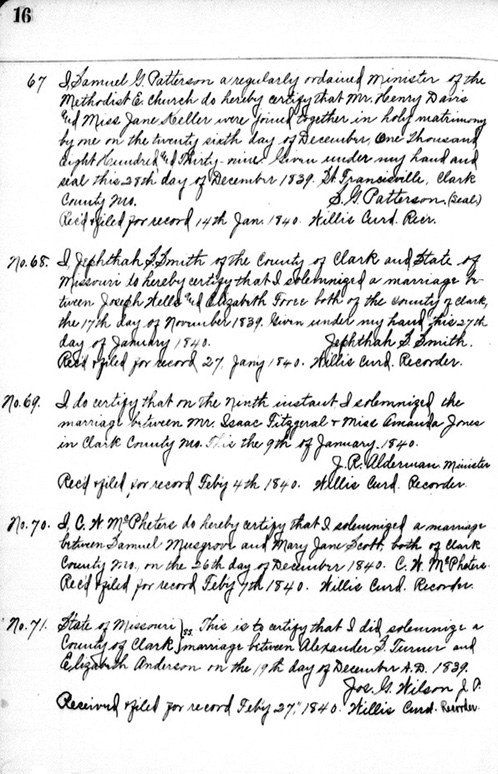 16
67 I Samuel G. Patterson a regularly ordained Minister of the
Methodist E. Church do hereby certify that Mr. Henry Davis
and Miss Jane Keller were joined together in holy matrimony
by me on the twenty sixth day of December, One Thousand
Eight Hundred and Thirty-nine. Given under my hand and
seal this 28th day of December 1839. St. Francisville, Clark
County Mo. S. G. Patterson. (Seal)
Rec'd & filed for record 14th Jan. 1840. Willis Curd. Recr.
No. 68. I, Jephthah S. Smith of the County of Clark and State of
Missouri to hereby certify that I solemnized a marriage be-
tween Joseph Wells and Elizabeth Force both of the county of Clark,
the 17th day of November 1839. Given under my hand this 27th
day of January 1840. Jephthah S. Smith.
Rec'd & filed for record 27, Jany 1840. Willis Curd. Recorder.
No. 69. I do certify that on the ninth instant I solemnized the
marriage between Mr. Isaac Fitzgeral & Miss Amanda Jones
in Clark County Mo. This the 9th of January 1840.
J. R. Alderman Minister
Rec'd & filed for record Feby 4th 1840. Willis Curd. Recorder.
No. 70. I, C. W. McPheters do hereby certify that I solemnized a marriage
between Samuel Musgrove and Mary Jane Scott, both of Clark
County Mo., on the 26th day of December 1840. C. W. McPheters.
Rec'd & filed for record Feby 7th 1840. Willis Curd. Recorder.
No. 71. State of Missouri } ss. This is to certify that I did solemnize a
County of Clark } marriage between Alexander S. Turner and
Elizabeth Anderson on the 19th day of December A.D. 1839.
Jos. G. Wilson J. P.
Received & filed for record Feby 27, 1840. Willis Curd. Recorder.